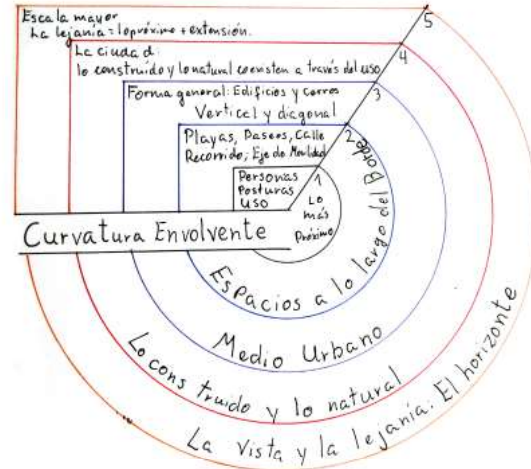 Escala mayor
La lejanía = lo próximo + extensión.
5
La ciudad:
lo construido y lo natural coexisten a través del uso
4
Forma general: Edificios y cerros
Vertical y diagonal
3
Playas, Paseos, Calle
Recorrido; Eje de Movilidad
2
Personas
Posturas
uso
1
Lo
más
Próximo
Curvatura Envolvente
Espacios a lo largo del Borde
Medio Urbano
Lo construido y lo natural
La vista y la lejanía. El horizonte